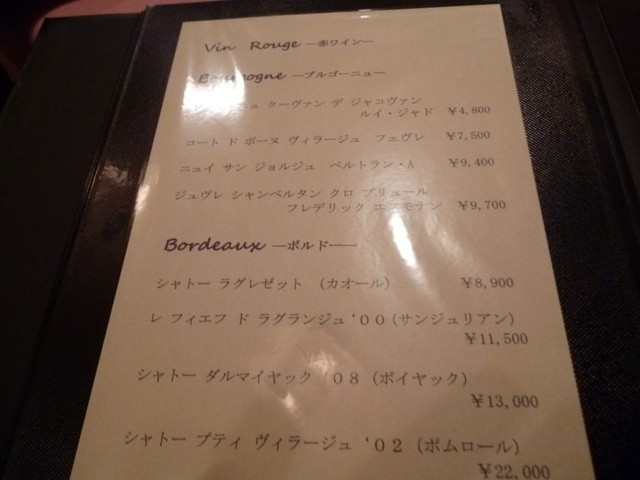 Vin Rouge ―赤ワイン―
Bourgogne ―ブルゴーニュ―
クーヴァン デ ジャコヴァン
ルイ・ジャド ￥4,800
コート ド ボーヌ ヴィラージュ フェヴレ ￥7,500
ニュイ サン ジョルジュ ベルトラン・A ￥9,400
ジュヴレ シャンベルタン クロ プリュール
フレデリック エスモナン ￥9,700
Bordeaux ―ボルドー―
シャトー ラグレゼット （カオール） ￥8,900
レ フィエフ ド ラグランジュ '００（サンジュリアン）
￥11,500
シャトー ダルマイヤック '０８（ポイヤック）
￥13,000
シャトー プティ ヴィラージュ '０２（ポムロール）
￥22,000